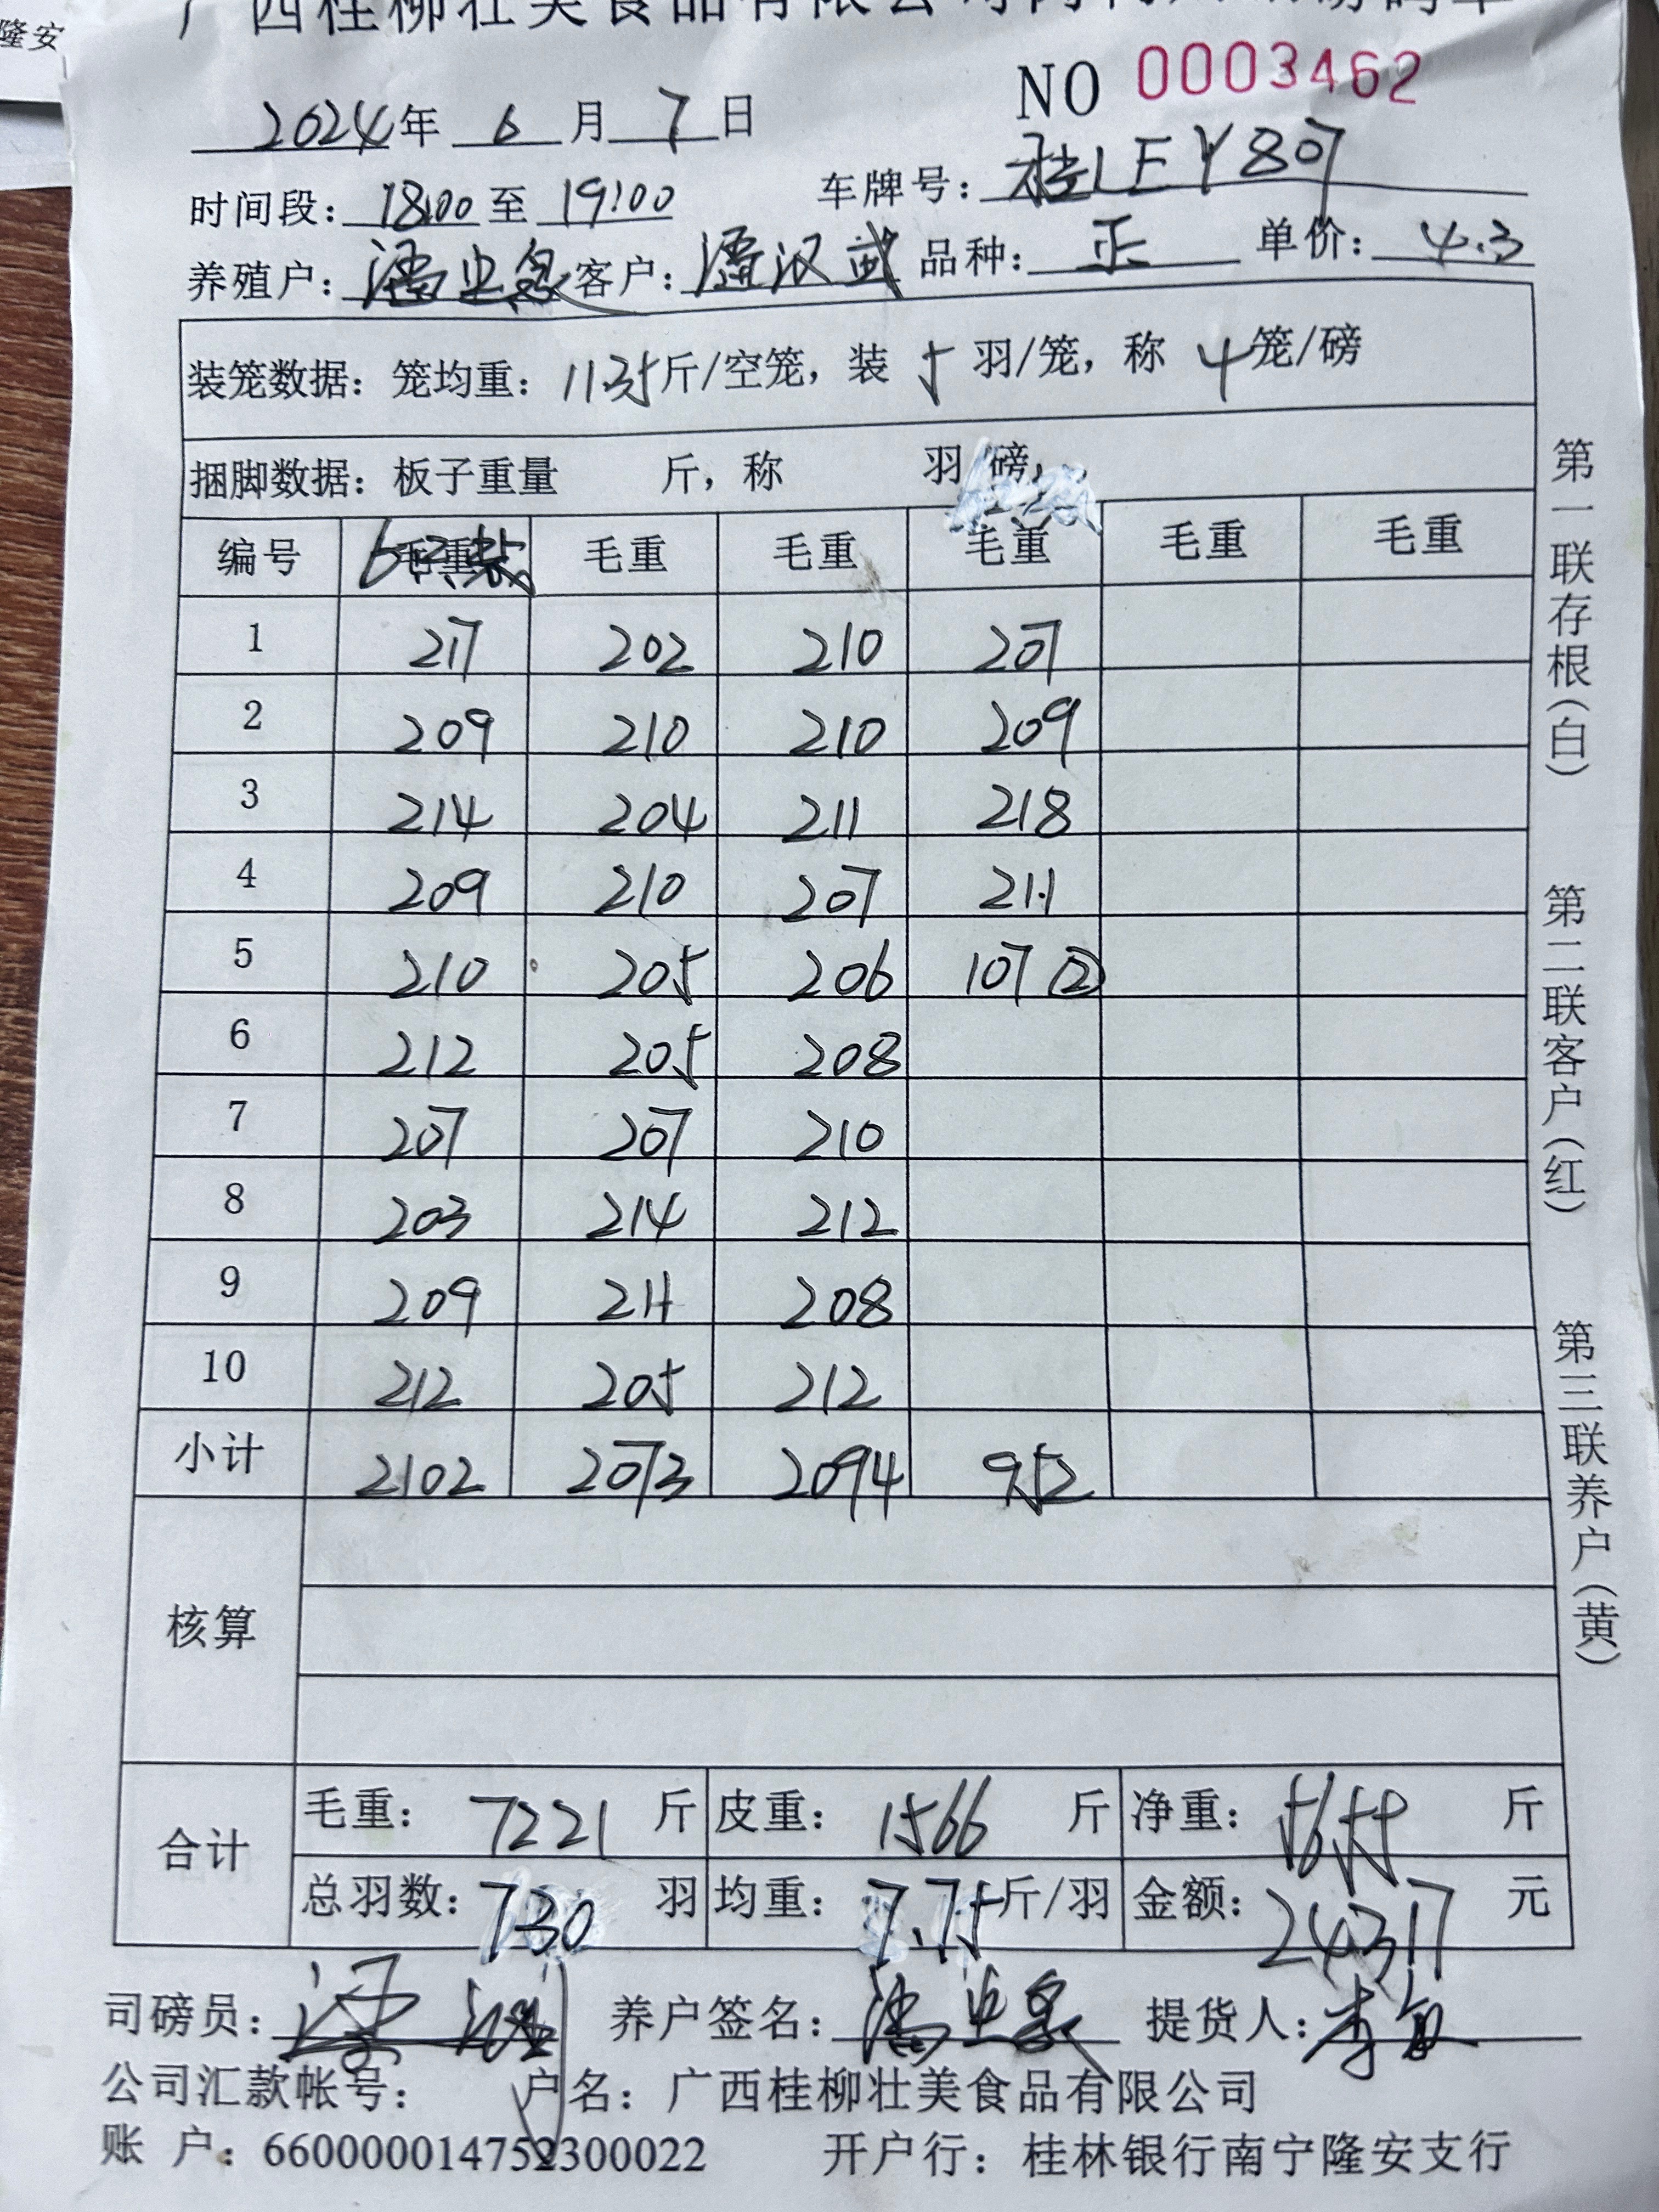 隆安
广西桂柳壮美食品有限公司
NO 0003462
2024年 6 月 7 日
时间段: 18:00 至 19:00 车牌号: 桂LEY807
养殖户: 潘业 客户: 潘汉武 品种: 正 单价: 4.3
装笼数据: 笼均重: 11.35斤/空笼, 装 5 羽/笼, 称 4 笼/磅
捆脚数据: 板子重量 斤, 称 羽/磅,
编号 毛重 毛重 毛重 毛重 毛重 毛重
1 217 202 210 207
2 209 210 210 209
3 214 204 211 218
4 209 210 207 211
5 210 205 206 107 ②
6 212 205 208
7 207 207 210
8 203 214 212
9 209 211 208
10 212 205 212
小计 2102 2073 2094 952
核算
合计
毛重: 7221 斤 皮重: 1566 斤 净重: 5655 斤
总羽数: 730 羽 均重: 7.75 斤/羽 金额: 24317 元
司磅员: 养户签名: 潘业 提货人: 李
公司汇款帐号: 户名: 广西桂柳壮美食品有限公司
账 户: 660000014752300022 开户行: 桂林银行南宁隆安支行
第一联存根(白)
第二联客户(红)
第三联养户(黄)